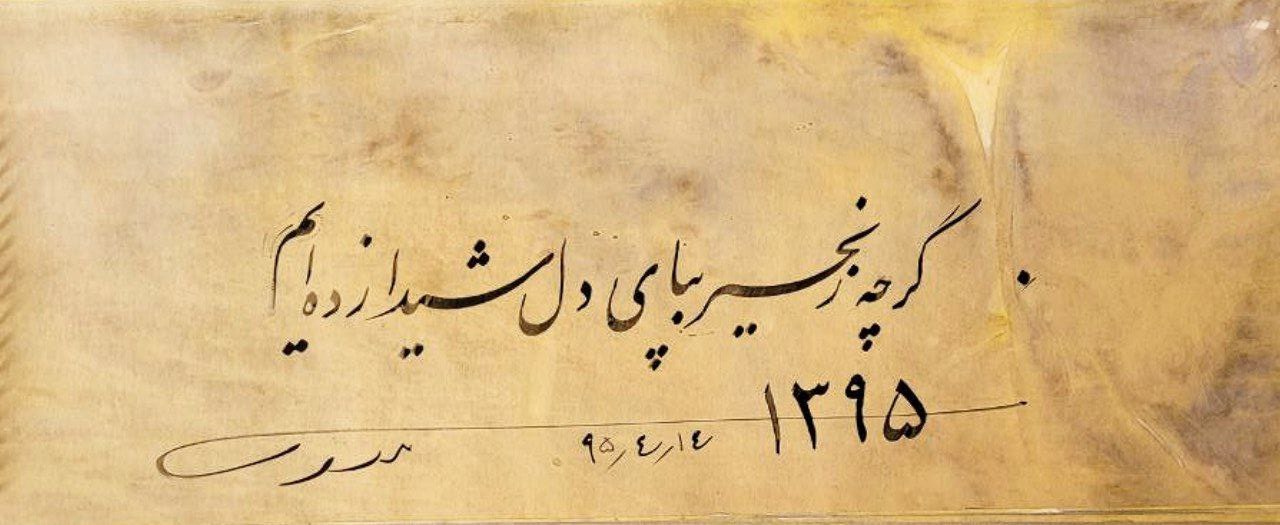 گرچه زنجیر بپای دل شیدا زده‌ایم
۱۳۹۵
۹۵٫۴٫۱۴